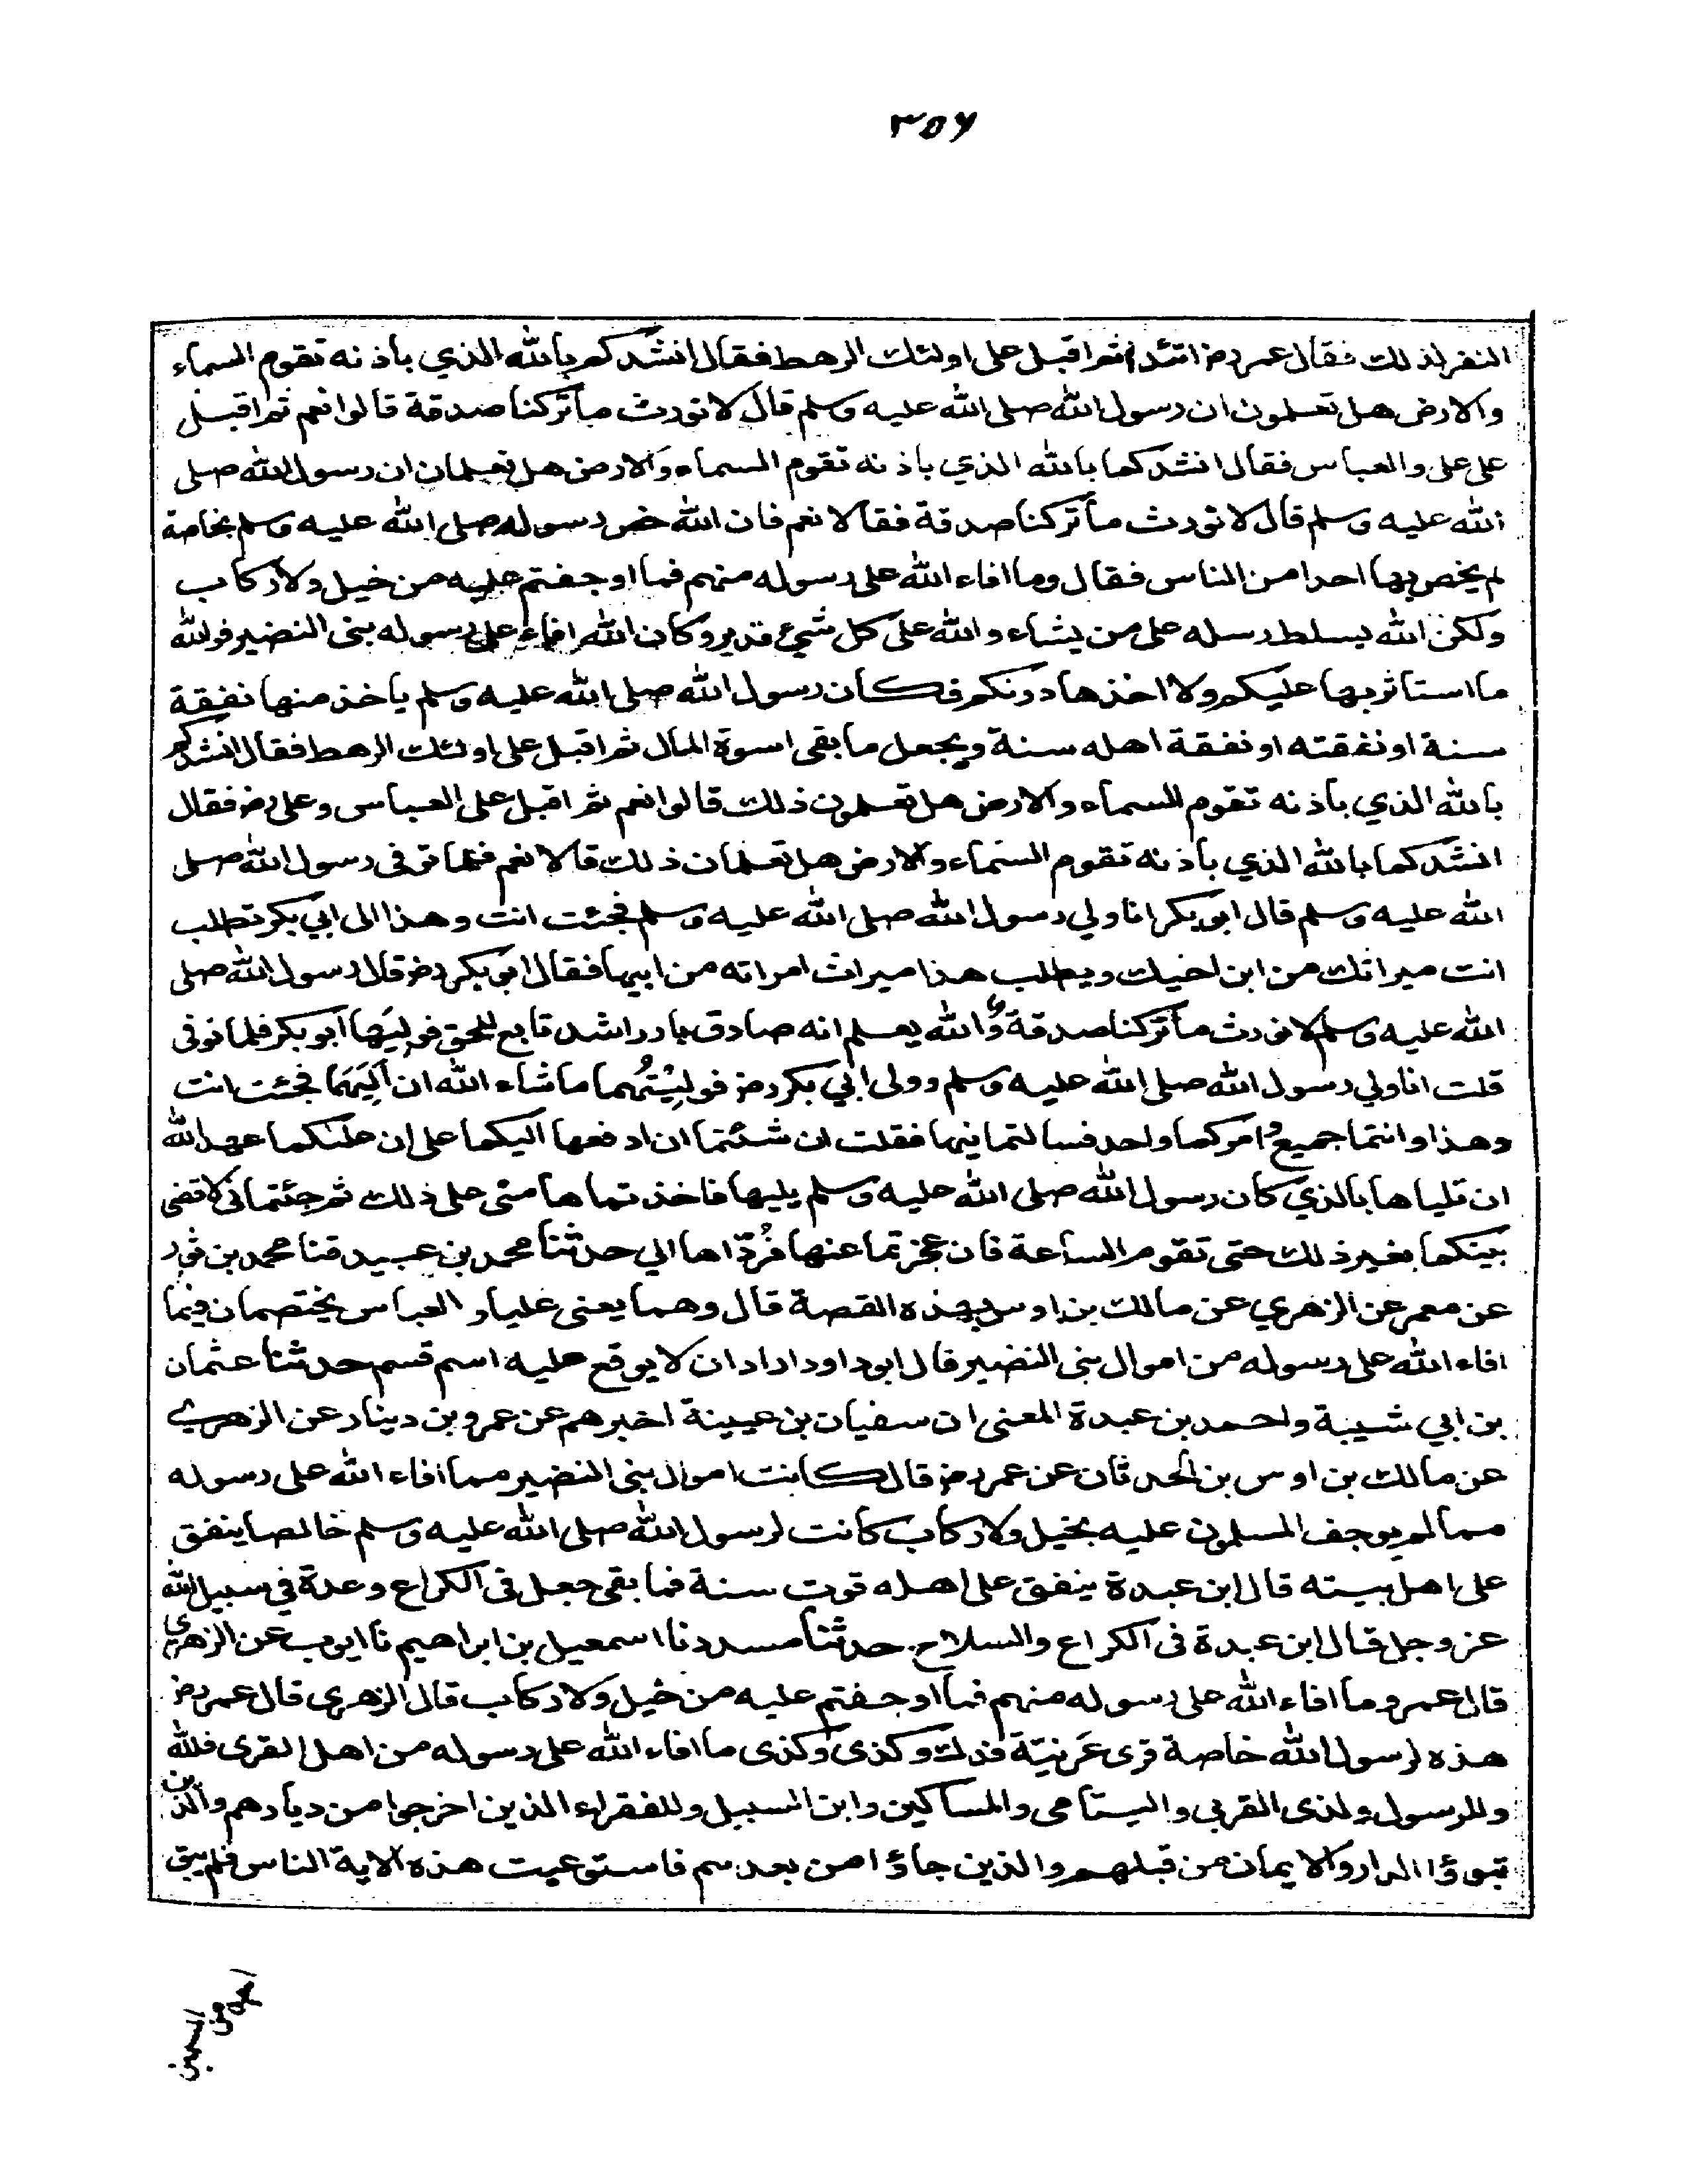 ٣٥٦
النفر لذلك فقال عمر رض اتئدا ثم اقبل على اولئك الرهط فقال انشدكم بالله الذي باذنه تقوم السماء
والارض هل تعلمون ان رسول الله صلى الله عليه وسلم قال لا نورث ما تركنا صدقة قالوا نعم ثم اقبل
على على والعباس فقال انشدكما بالله الذي باذنه تقوم السماء والارض هل تعلمان ان رسول الله صلى
الله عليه وسلم قال لا نورث ما تركنا صدقة فقالا نعم فان الله خص رسوله صلى الله عليه وسلم بخاصة
لم يخص بها احدا من الناس فقال وما افاء الله على رسوله منهم فما اوجفتم عليه من خيل ولا ركاب
ولكن الله يسلط رسله على من يشاء والله على كل شيء قدير وكان الله افاء على رسوله بنى النضير فوالله
ما استاثر بها عليكم ولا اخذها دونكم فكان رسول الله صلى الله عليه وسلم ياخذ منها نفقة
سنة او نفقته او نفقة اهله سنة ويجعل ما بقى اسوة المال ثم اقبل على اولئك الرهط فقال انشدكم
بالله الذي باذنه تقوم السماء والارض هل تعلمون ذلك قالوا نعم ثم اقبل على العباس وعلى رض فقال
انشدكما بالله الذي باذنه تقوم السماء والارض هل تعلمان ذلك قالا نعم فلما توفى رسول الله صلى
الله عليه وسلم قال ابو بكر انا ولي رسول الله صلى الله عليه وسلم فجئت انت وهذا الى ابي بكر تطلب
انت ميراثك من ابن اخيك ويطلب هذا ميراث امراته من ابيها فقال ابو بكر رض قال رسول الله صلى
الله عليه وسلم لا نورث ما تركنا صدقة والله يعلم انه صادق بار راشد تابع للحق فوليَها ابو بكر فلما توفى
قلت انا ولي رسول الله صلى الله عليه وسلم وولى ابي بكر رض فوليْتُهما ما شاء الله ان اَلِيَهَما فجئت انت
وهذا وانتما جميعٌ وامركما واحد فسالتمانيها فقلت ان شئتما ان ادفعها اليكما على ان عليكما عهد الله
ان تلياها بالذي كان رسول الله صلى الله عليه وسلم يليها فاخذتماها منى على ذلك ثم جئتمانى لاقضى
بينكما بغير ذلك حتى تقوم الساعة فان عجزتما عنها فرُدّاها الي حدثنا محمد بن عبيد قثنا محمد بن ثور
عن معمر عن الزهري عن مالك بن اوس بهذه القصة قال وهما يعنى عليا والعباس يختصمان فيما
افاء الله على رسوله من اموال بنى النضير قال ابو داود اراد ان لا يوقع عليه اسم قسم حدثنا عثمان
بن ابي شيبة واحمد بن عبدة المعنى ان سفيان بن عيينة اخبرهم عن عمرو بن دينار عن الزهري
عن مالك بن اوس بن الحدثان عن عمر رض قال كانت اموال بنى النضير مما افاء الله على رسوله
مما لم يوجف المسلمون عليه بخيل ولا ركاب كانت لرسول الله صلى الله عليه وسلم خالصا ينفق
على اهل بيته قال ابن عبدة ينفق على اهله قوت سنة فما بقى جعل فى الكراع وعدة في سبيل الله
عز وجل قال ابن عبدة فى الكراع والسلاح. حدثنا مسدد نا اسمعيل بن ابراهيم نا ايوب عن الزهرى
قال عمر وما افاء الله على رسوله منهم فما اوجفتم عليه من خيل ولا ركاب قال الزهرى قال عمر رض
هذه لرسول الله خاصة قرى عَرنِيّة فدك وكذى وكذى ما افاء الله على رسوله من اهل القرى فلله
وللرسول ولذى القربى واليتامى والمساكين وابن السبيل وللفقراء الذين اخرجوا من ديارهم والذين
تبوؤا الدار والايمان من قبلهم والذين جاؤا من بعدهم فاستوعبت هذه الاية الناس فلم يبق